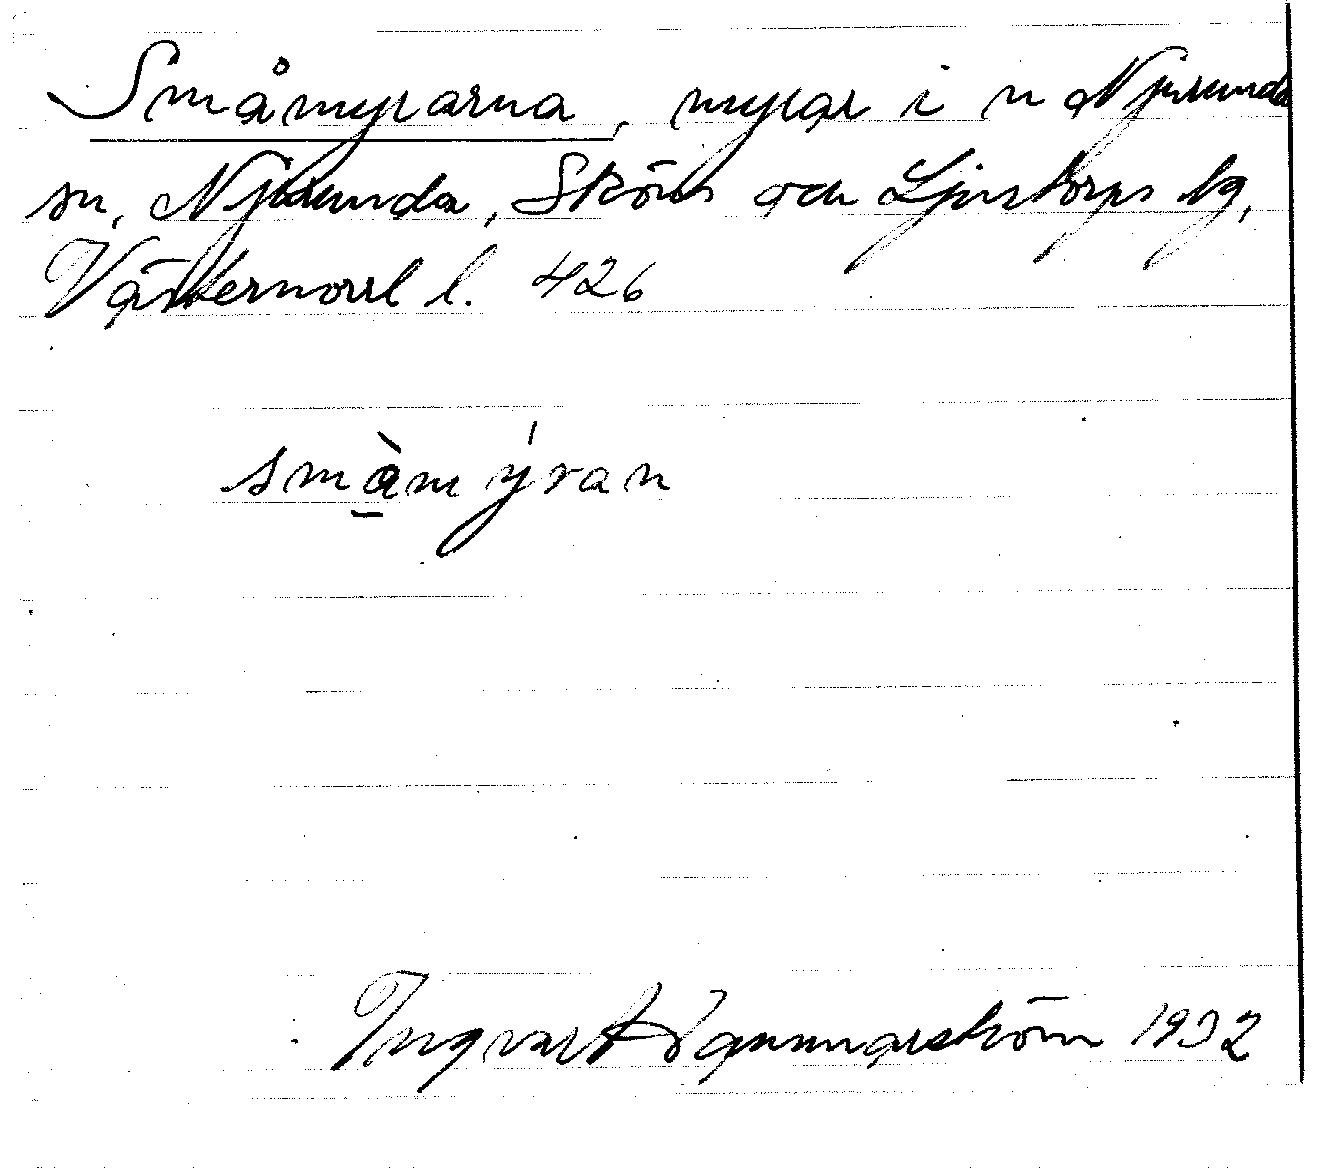 Småmyrarna, myrar i n Njurunda
sn, Njurunda, Sköns och Ljustorps tg,
Västernorrl l. 426
småmýran
Ingvar Hammarström 1932